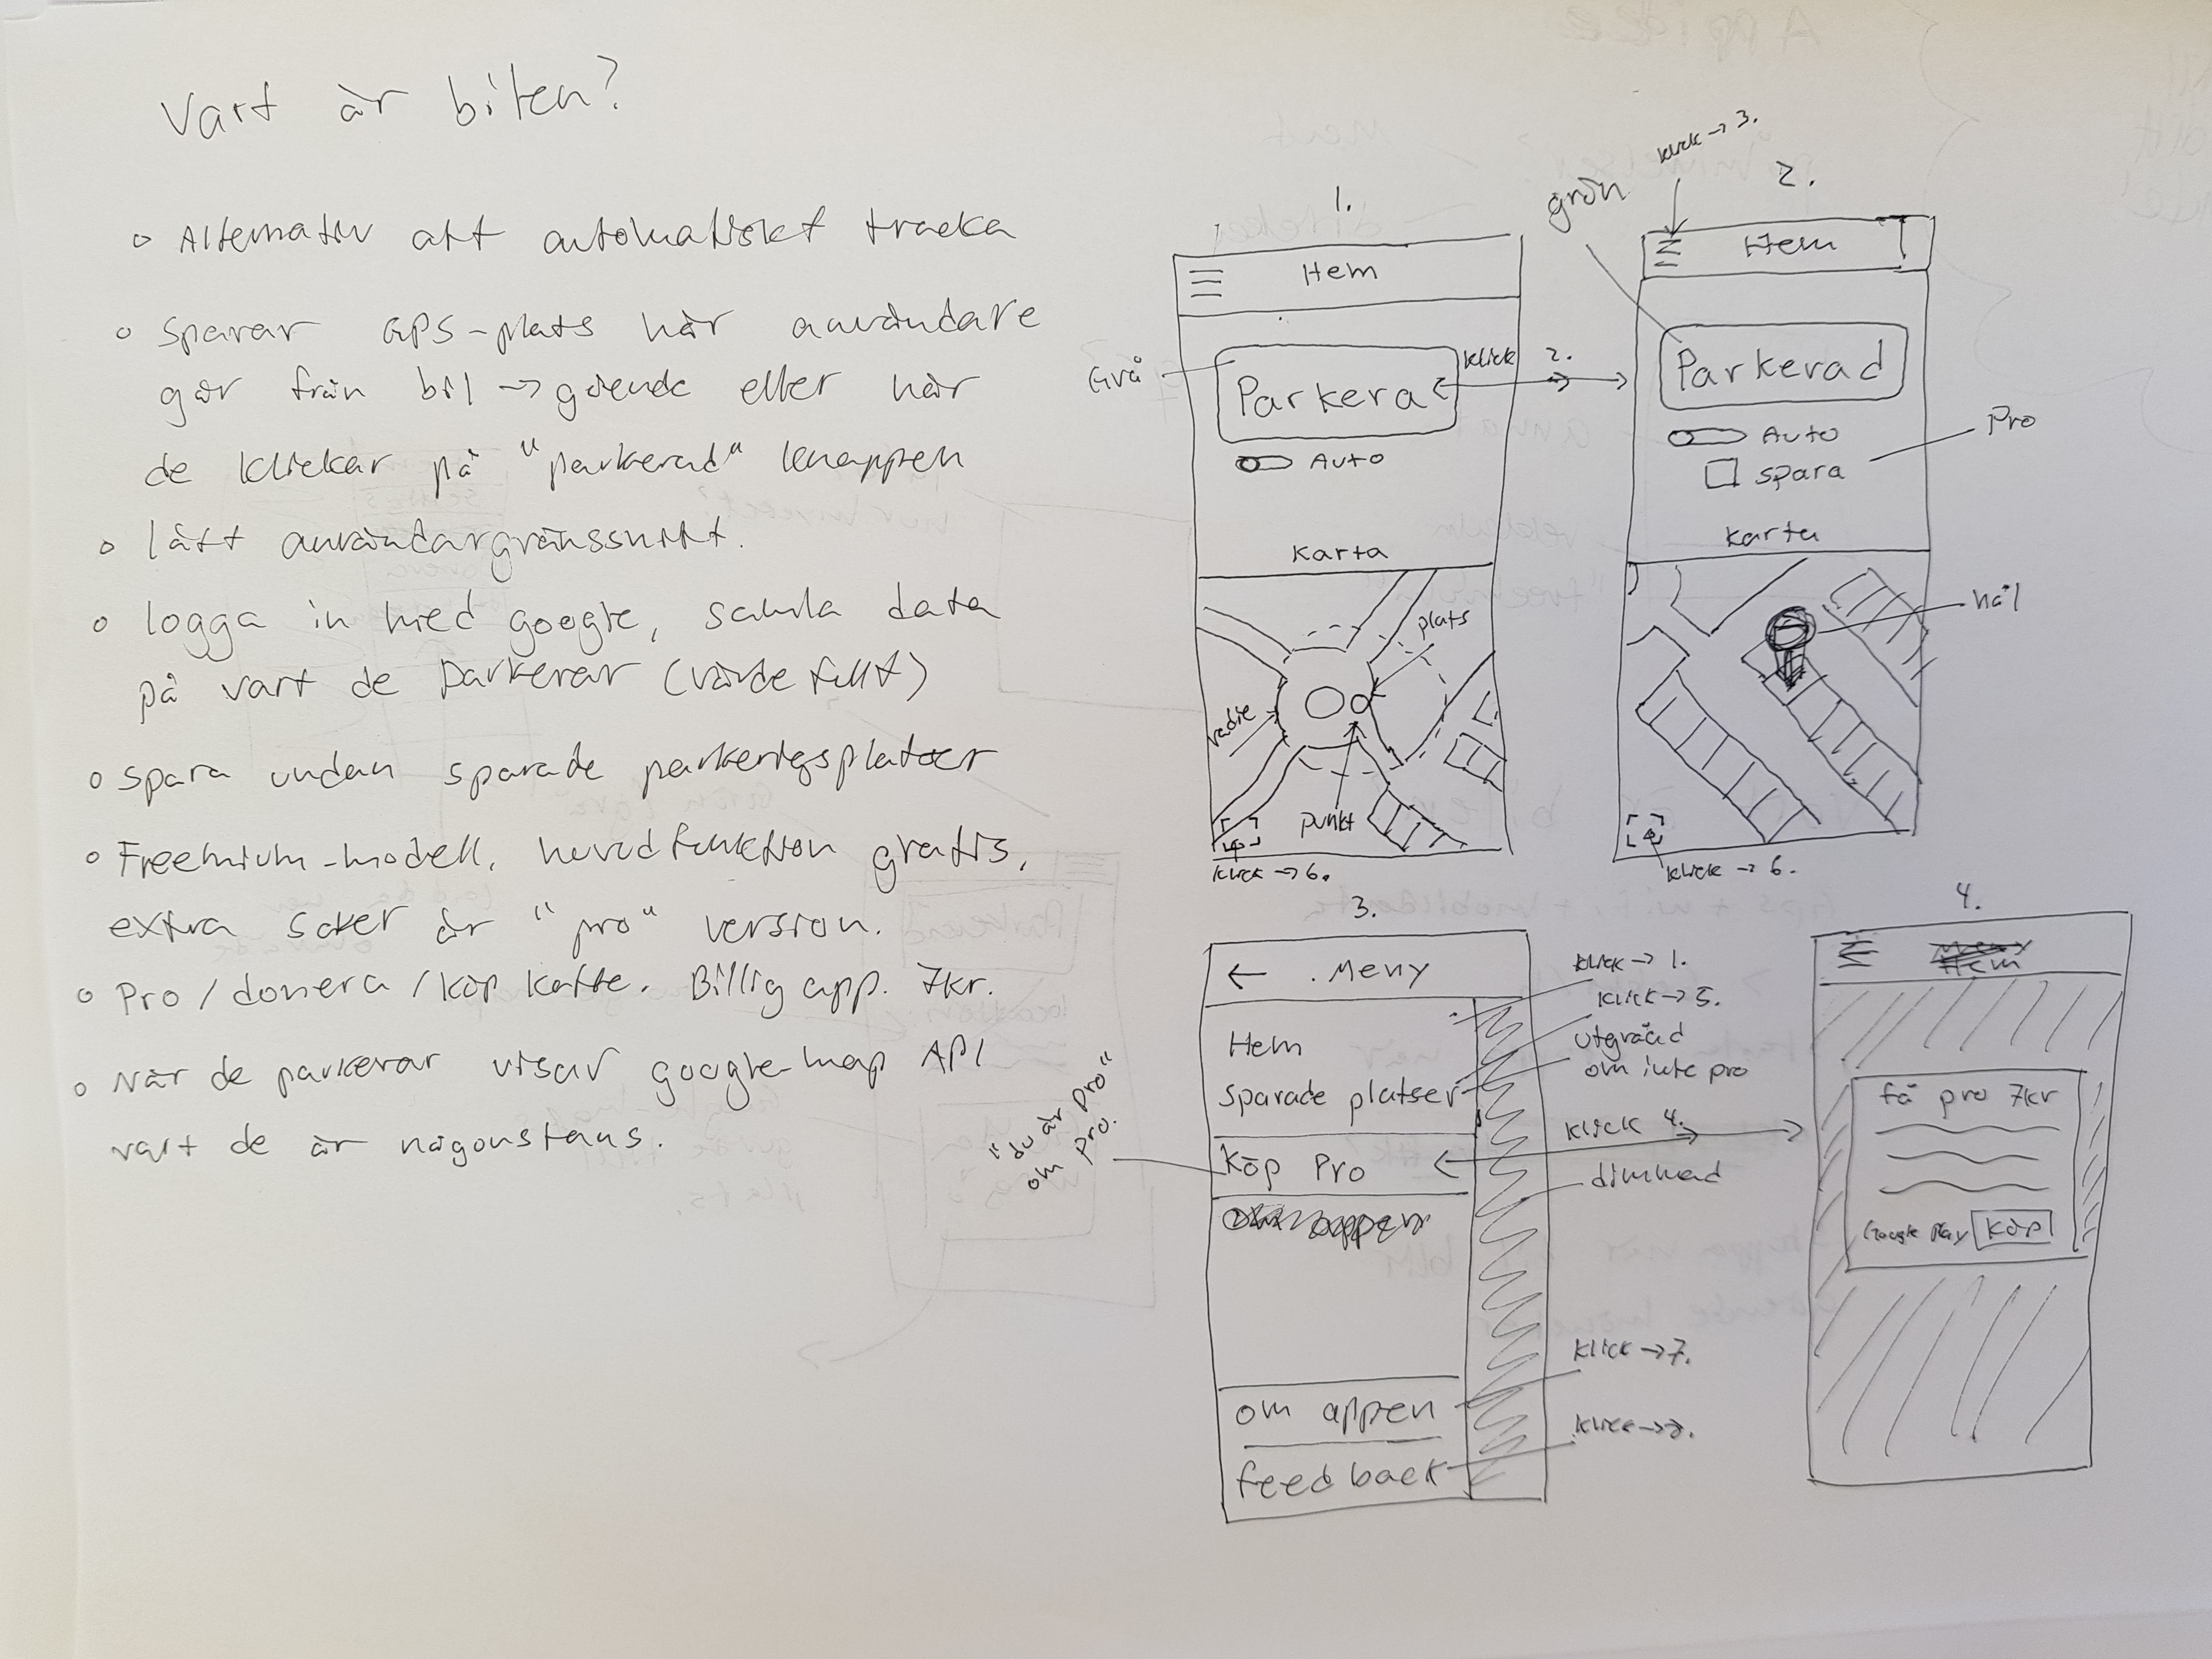 Vart är bilen?
o Alternativ att automatiskt tracka
o Sparar GPS-plats när användare
går från bil → gående eller när
de klickar på "parkerad" knappen
o lätt användargränssnitt.
o logga in med google, samla data
på vart de parkerar (värdefullt)
o spara undan sparade parkeringsplatser
o Freemium-modell, huvudfunktion gratis,
extra saker är "pro" version.
o Pro / donera / köp kaffe. Billig app. 7kr.
o När de parkerar visar google-map API
vart de är någonstans.
1.
Hem
Grå
Parkera
klick 2.
Auto
Karta
plats
radie
punkt
klick → 6.
klick → 3.
2.
grön
Hem
Parkerad
Auto
spara
Pro
karta
nål
klick → 6.
3.
← Meny
Hem
Sparade platser
Köp Pro
om appen
feedback
klick → 1.
klick → 5.
utgråad
om inte pro
klick 4.
dimmad
"du är Pro"
om pro.
klick → 7.
4.
Hem
få pro 7kr
Google Play Köp